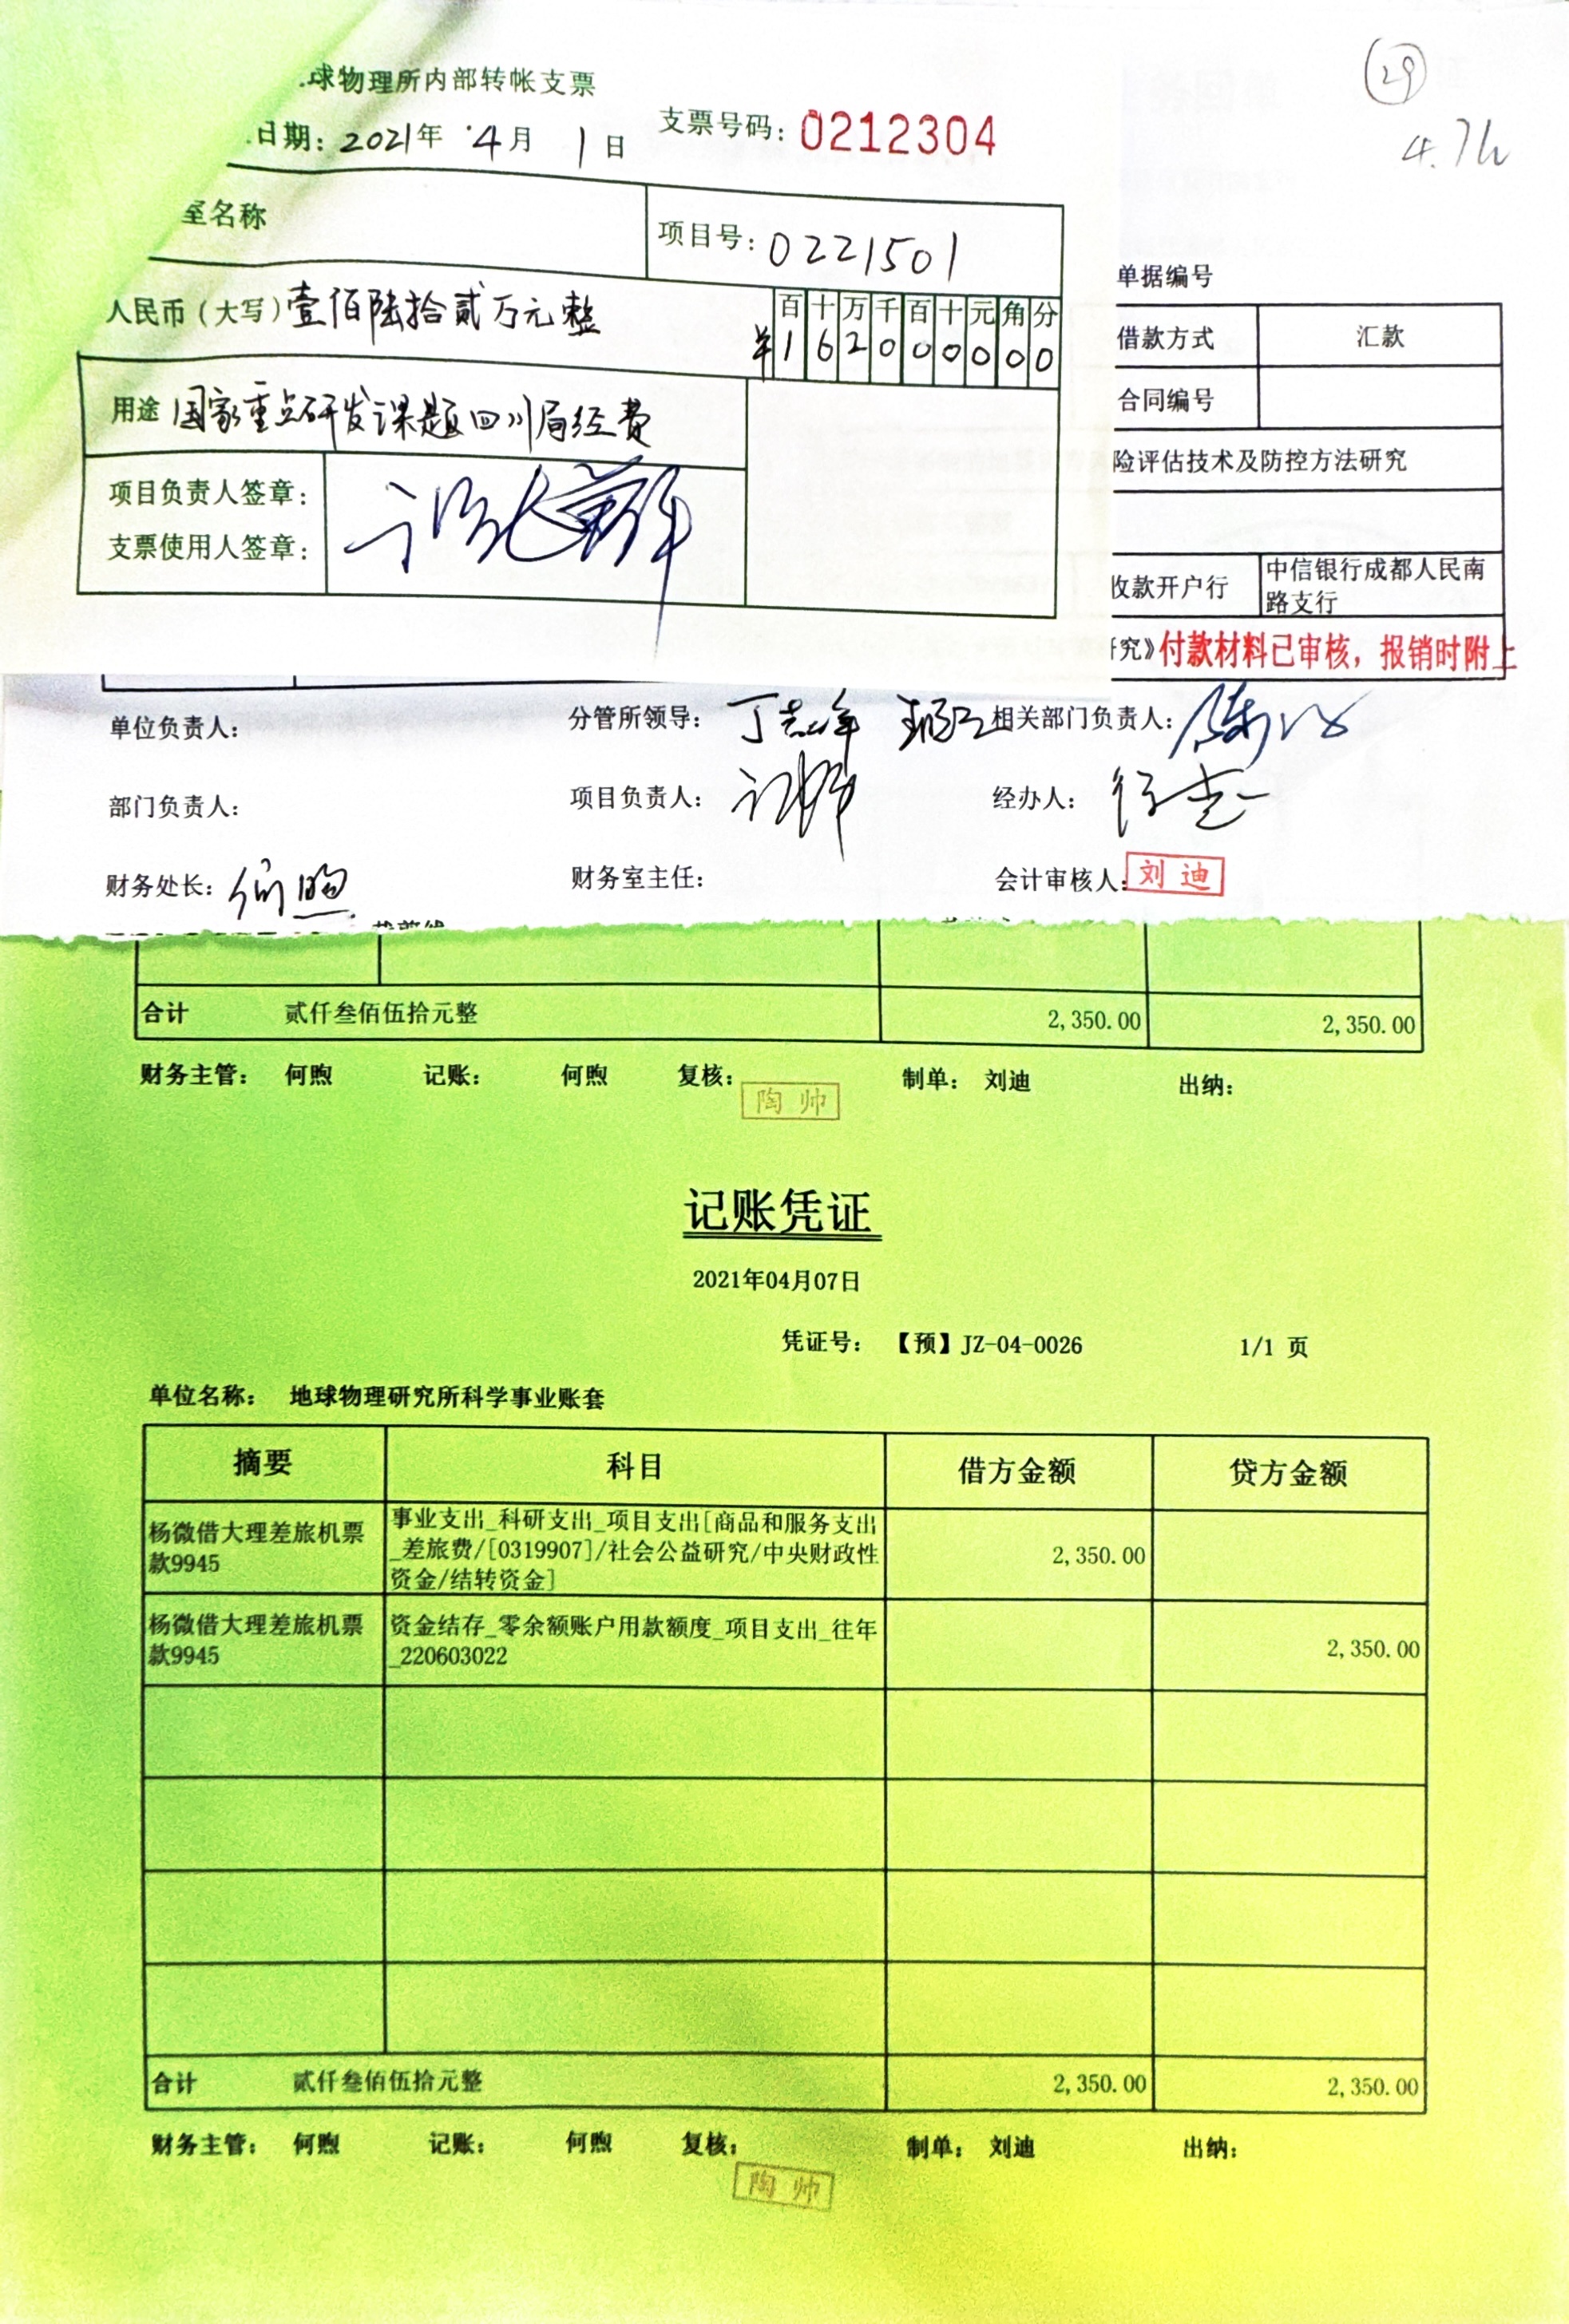 球物理所内部转帐支票
日期：2021年 4月 1日
支票号码：0212304
29
室名称
项目号：0221501
人民币（大写）壹佰陆拾贰万元整
百十万千百十元角分
¥162000000
用途 国家重点研发课题四川局经费
项目负责人签章：
支票使用人签章：
单据编号
借款方式 汇款
合同编号
险评估技术及防控方法研究
收款开户行 中信银行成都人民南路支行
究》付款材料已审核，报销时附上
单位负责人：
分管所领导：丁志峰
相关部门负责人：
部门负责人：
项目负责人：
经办人：
财务处长：何煦
财务室主任：
会计审核人：刘迪
合计 贰仟叁佰伍拾元整 2,350.00 2,350.00
财务主管： 何煦 记账： 何煦 复核： 制单： 刘迪 出纳：
陶帅
记账凭证
2021年04月07日
凭证号： 【预】JZ-04-0026 1/1 页
单位名称： 地球物理研究所科学事业账套
摘要 科目 借方金额 贷方金额
杨微借大理差旅机票
款9945
事业支出_科研支出_项目支出[商品和服务支出
_差旅费/[0319907]/社会公益研究/中央财政性
资金/结转资金]
2,350.00
杨微借大理差旅机票
款9945
资金结存_零余额账户用款额度_项目支出_往年
_220603022
2,350.00
合计 贰仟叁佰伍拾元整 2,350.00 2,350.00
财务主管： 何煦 记账： 何煦 复核： 制单： 刘迪 出纳：
陶帅